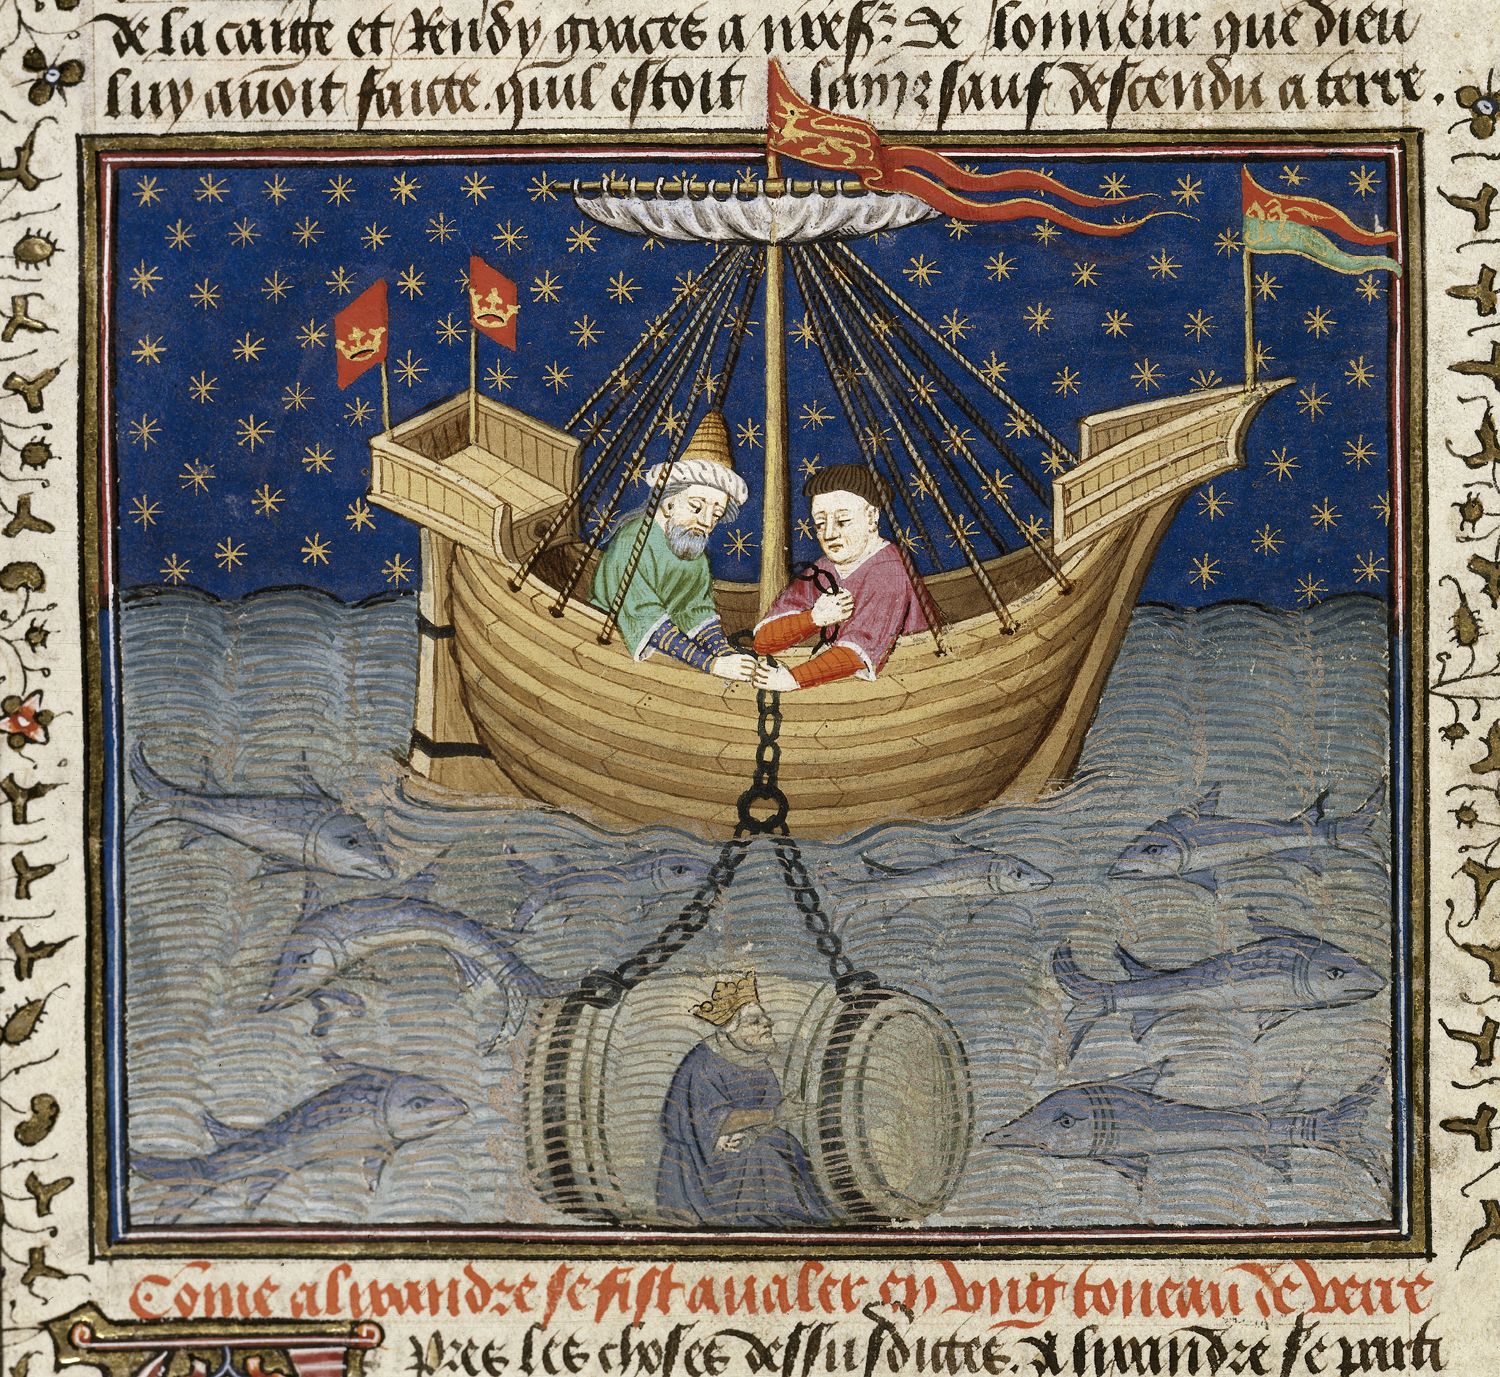 de la caige et Rendy graces a nres. de lonneur que dieu
luy auoit faicte. quil estoit sain & sauf descendu a terre.
Come alixandre se fist aualer en vng toneau de verre
pres les choses dessusdittes. Alixandre se parti